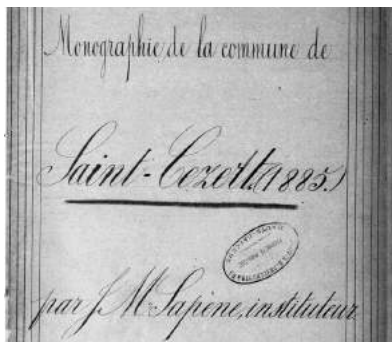 Monographie de la commune de
Saint-Cezert (1885.)
par J. M. Sapène, instituteur